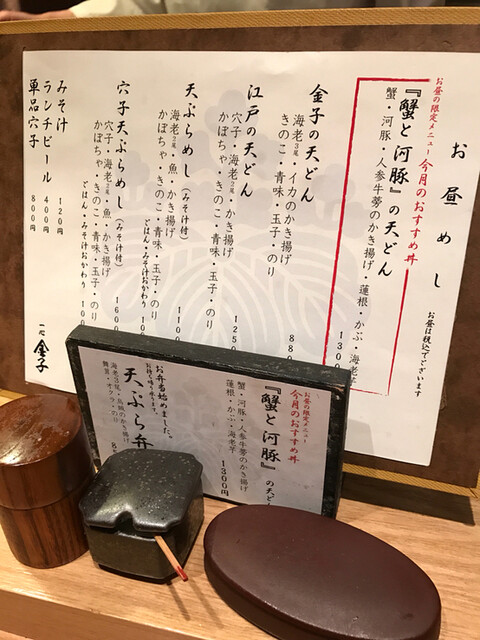 お昼めし
お昼は税込でございます
お昼の限定メニュー
今月のおすすめ丼
『蟹と河豚』の天どん
蟹・河豚・人参牛蒡のかき揚げ・蓮根・かぶ・海老芋
1300
金子の天どん
海老2尾・イカのかき揚げ
きのこ・青味・玉子・のり
880
江戸の天どん
穴子・海老2尾・かき揚げ
かぼちゃ・きのこ・青味・玉子・のり
1250
天ぷらめし(みそ汁付)
海老2尾・魚・かき揚げ
かぼちゃ・きのこ・青味・玉子・のり
1100
ごはん・みそ汁おかわり
穴子天ぷらめし(みそ汁付)
穴子・海老2尾・魚・かき揚げ
かぼちゃ・きのこ・青味・玉子・のり
1600
ごはん・みそ汁おかわり
みそ汁 120円
ランチビール 400円
単品穴子 800円
金子
お昼の限定メニュー
今月のおすすめ丼
『蟹と河豚』の天どん
蟹・河豚・人参牛蒡のかき揚げ
蓮根・かぶ・海老芋
1300円
お弁当始めました。
天ぷら弁